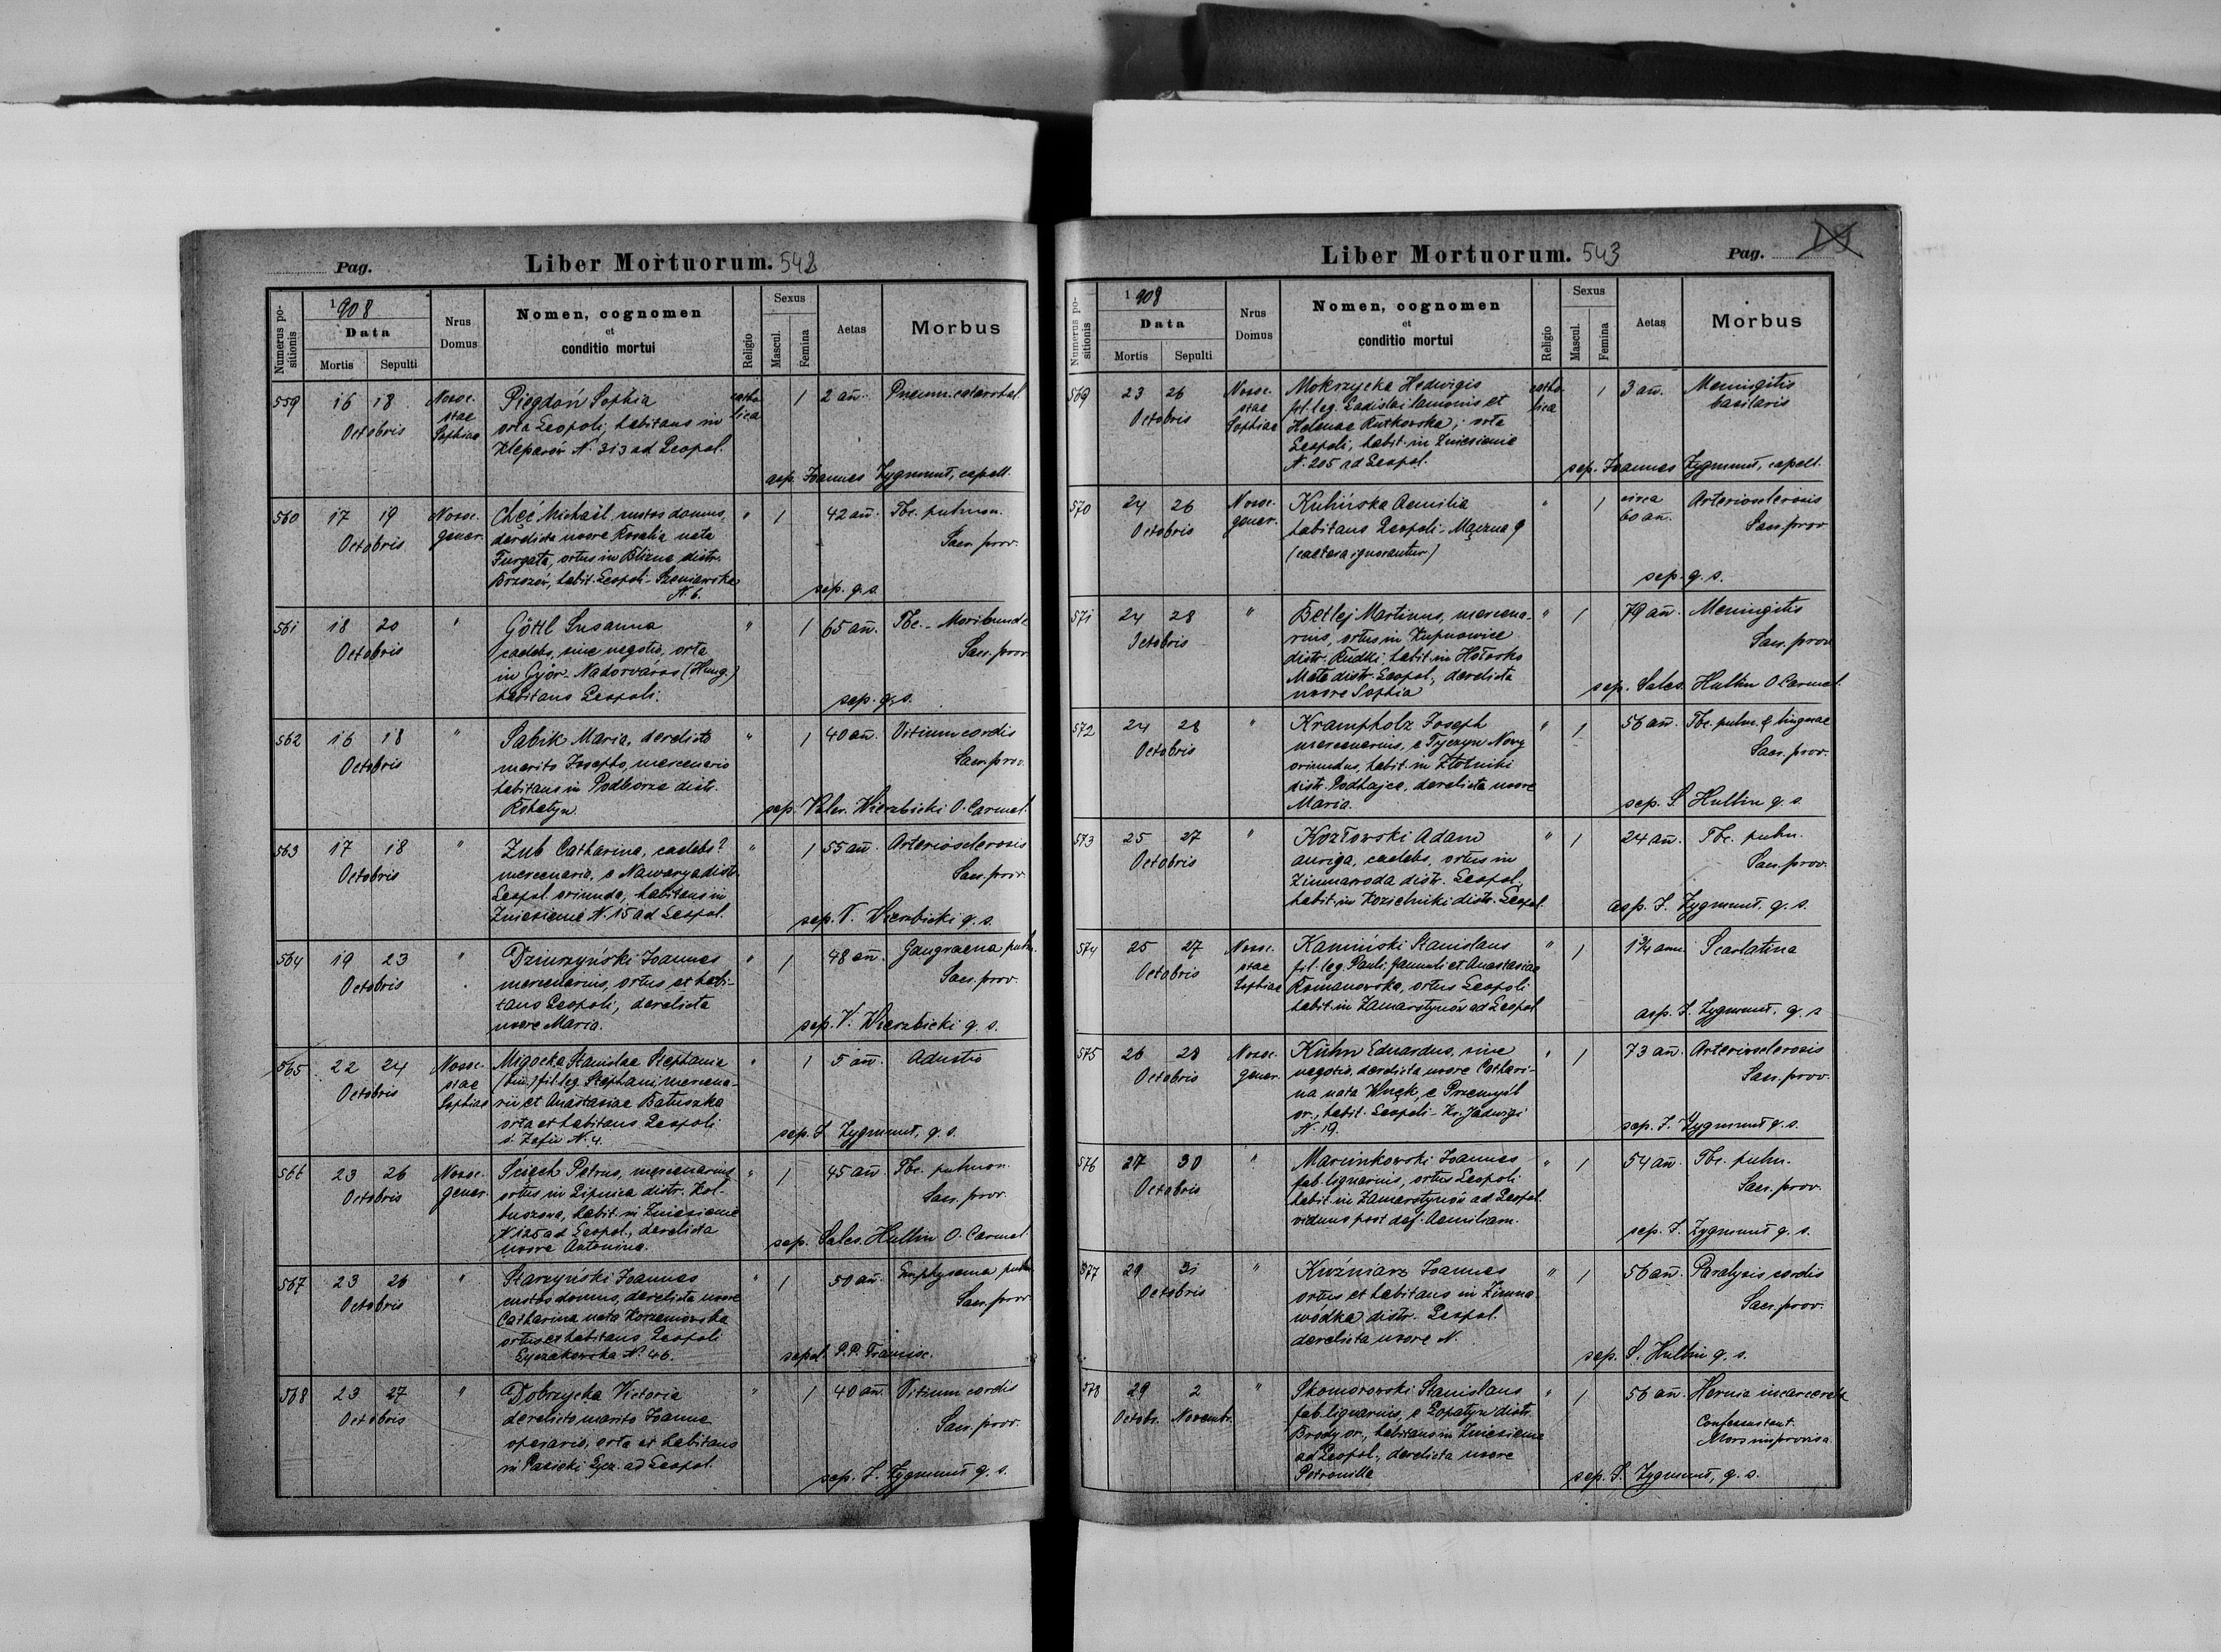 Pag.
Liber Mortuorum. 542
Numerus positionis
1908
Data
Mortis Sepulti
Nrus Domus
Nomen, cognomen
et
conditio mortui
Religio
Sexus
Mascul. Femina
Aetas
Morbus
559 16 18 Octobris Nosoc. stae Sophiae
Piegdoń Sophia
orta Leopoli, habitans in
Kleparów N. 313 ad Leopol.
catholica 1 2 añ. Pneum. catarrhal.
asp. Joannes Zygmunt, capell.
560 17 19 Octobris Nosoc. gener.
Chęć Michaël, custos domus,
derelicta uxore Rosalia nata
Furgata, ortus in Blizne distr.
Brzozów, habit. Leopoli - Szeniawska
N. 6.
" 1 42 añ. Tbc. pulmon.
Sacr. prov.
sep. q. s.
561 18 20 Octobris "
Göttl Susanna
caelebs, sine negotio, orta
in Györ-Nadorváros (Hung.)
habitans Leopoli.
" 1 65 añ. Tbc. - Moribunda
Sacr. prov.
sep. q. s.
562 16 18 Octobris "
Sabik Maria, derelicto
marito Josepho, mercenario
habitans in Podborze distr.
Rohatyn
" 1 40 añ. Vitium cordis
Sacr. prov.
sep. Valer. Wierzbicki O. Carmel.
563 17 18 Octobris "
Zub Catharina, caelebs?
mercenaria, e Nawarya distr.
Leopol. oriunda, habitans in
Zniesienie N. 15 ad Leopol.
" 1 55 añ. Arteriosclerosis
Sacr. prov.
sep. V. Wierzbicki q. s.
564 19 23 Octobris "
Dziurzyński Joannes
mercenarius, ortus et habi-
tans Leopoli, derelicta
uxore Maria.
" 1 48 añ. Gangraena pulm.
Sacr. prov.
sep. V. Wierzbicki q. s.
565 22 24 Octobris Nosoc. stae Sophiae
Migocka Stanislae Stephania
(bin.) fil. leg. Stephani mercena-
rii et Anastasiae Batuszka
orta et habitans Leopoli
ś. Zofii N. 4.
" 1 5 añ. Adustio
sep. J. Zygmunt, q. s.
566 23 26 Octobris Nosoc. gener.
Ściech Petrus, mercenarius
ortus in Lipnica distr. Kol-
buszowa, habit. in Zniesienie
N 125 ad Leopol., derelicta
uxore Antonina.
" 1 45 añ. Tbc. pulmon.
Sacr. prov.
sep. Sales. Hullin O. Carmel.
567 23 26 Octobris "
Starzyński Joannes
custos domus, derelicta uxore
Catharina nata Korzeniowska
ortus et habitans Leopoli
Łyczakowska N. 46.
" 1 50 añ. Emphysema pulm.
Sacr. prov.
sepel. P. P. Francisc.
568 23 27 Octobris "
Dobrzycka Victoria
derelicto marito Joanne
operario, orta et habitans
in Pasieki Łycz. ad Leopol.
" 1 40 añ. Vitium cordis
Sacr. prov.
sep. J. Zygmunt q. s.
Liber Mortuorum. 543
Pag.
Numerus positionis
1908
Data
Mortis Sepulti
Nrus Domus
Nomen, cognomen
et
conditio mortui
Religio
Sexus
Mascul. Femina
Aetas
Morbus
569 23 26 Octobris Nosoc. stae Sophiae
Mokrzycka Hedwigis
fil. leg. Ladislai lanionis et
Helenae Rutkowska, orta
Leopoli, habit. in Zniesienie
N. 205 ad Leopol.
catholica 1 3 añ. Meningitis
basilaris
sep. Joannes Zygmunt, capell.
570 24 26 Octobris Nosoc. gener.
Kulińska Aemilia
habitans Leopoli - Mączna 9
(caetera ignorantur)
" 1 circa 60 añ. Arteriosclerosis
Sacr. prov
sep. q. s.
571 24 28 Octobris "
Betlej Martinus, mercena-
rius, ortus in Kupnowice
distr. Rudki, habit. in Hołosko
Małe distr. Leopol., derelicta
uxore Sophia
" 1 79 añ. Meningitis
Sacr. prov.
sep. Sales. Hullin O. Carmel.
572 24 28 Octobris "
Krampholz Joseph
mercenarius, e Tyczyn Nowy
oriundus, habit. in Złotniki
distr. Podhajce, derelicta uxore
Maria.
" 1 56 añ. Tbc. pulm. & linguae
Sacr. prov.
sep. S. Hullin q. s.
573 25 27 Octobris "
Kozłowski Adam
auriga, caelebs, ortus in
Zimnawoda distr. Leopol.
habit. in Kozielniki distr. Leopol.
" 1 24 añ. Tbc. pulm.
Sacr. prov.
asp. J. Zygmunt, q. s.
574 25 27 Octobris Nosoc. stae Sophiae
Kamiński Stanislaus
fil. leg. Pauli famuli et Anastasiae
Romanowska, ortus Leopoli
habit. in Zamarstynów ad Leopol
" 1 1 3/4 anni Scarlatina
asp. J. Zygmunt, q. s
575 26 28 Octobris Nosoc. gener.
Kühn Eduardus, sine
negotio, derelicta uxore Cathari-
na nata Wnęk, e Przemyśl
or., habit. Leopoli - Kr. Jadwigi
N. 19.
" 1 73 añ. Arteriosclerosis
Sacr. prov.
sep. J. Zygmunt q. s.
576 27 30 Octobris "
Marcinkowski Joannes
fab. lignarius, ortus Leopoli
habit. in Zamarstynów ad Leopol.
viduus post def. Aemiliam.
" 1 54 añ. Tbc. pulm.
Sacr. prov.
sep. J. Zygmunt q. s.
577 29 31 Octobris "
Kuźniarz Joannes
ortus et habitans in Zimna
wódka distr. Leopol.
derelicta uxore N.
" 1 56 añ. Paralysis cordis
Sacr. prov.
sep. S. Hullin q. s.
578 29 2 Octobr. Novembr. "
Skomorowski Stanislaus
fab. lignarius, e Łopatyn distr.
Brody or., habitans in Zniesienie
ad Leopol., derelicta uxore
Petronilla
" 1 56 añ. Hernia incarcerata
Mors improvisa
sep. J. Zygmunt, q. s.